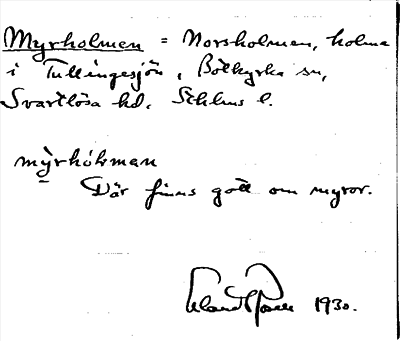 Myrholmen = Norsholmen, holme
i Tullingesjön, Botkyrka sn,
Svartlösa hd. Sthlms l.
mỳrhólman
Där finns gott om myror.
1930.